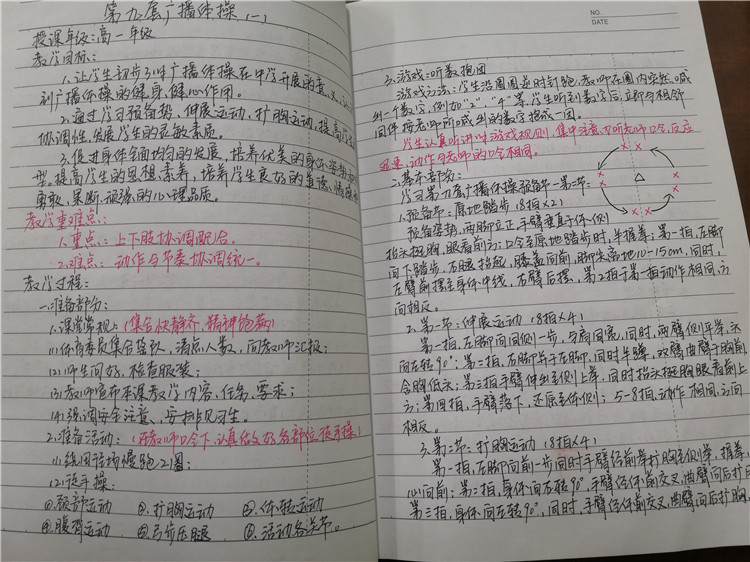 第九套广播体操(一)
授课年级:高一年级
教学目标:
1.让学生初步了解广播体操在中学开展的意义,认
到广播体操的健身、健心作用。
2.通过学习预备势、伸展运动,扩胸运动,提高学
协调性,发展学生的灵敏素质。
3.促进身体全面均匀的发展,培养优美的身体姿势
型。提高学生的思想素养,培养学生良好的道德、情操
勇敢,果断,顽强的心理品质。
教学重难点:
1.重点:上下肢协调配合。
2.难点:动作与节奏协调统一。
教学过程:
一.准备部分:
1.课堂常规:(集合快静齐,精神饱满)
(1)体育委员集合整队,清点人数,向教师汇报;
(2)师生问好,检查服装;
(3)教师宣布本课教学内容、任务、要求;
(4)强调安全注意、安排见习生。
2.准备活动:(听教师口令下,认真做好各部位徒手操)
(1)绕田径场慢跑2圈;
(2)徒手操:
①颈部运动 ②扩胸运动 ③体转运动
④腹背运动 ⑤弓步压腿 ⑥活动各关节。
NO.
DATE
3.游戏:听数抱团
游戏方法:学生沿圆圈逆时针跑,教师在圈内突然喊
出一个数字,例如“2”、“4”等,学生听到数字后,立即与相邻
同伴按老师所喊出的数字抱成一团。
学生认真听讲解游戏规则,集中注意力听老师口令,反应
迅速,动作与老师的口令相同。
二.基本部分:
学习第九套广播体操预备节—第二节:
1.预备节:原地踏步(8拍×2)
预备姿势,两脚立正,手臂垂直于体侧
抬头挺胸,眼看前方;口令至原地踏步时,半握拳;第一拍,左脚
向下踏步,右腿抬起,膝盖向前,脚尖离地10-15cm,同时,
左臂前摆至身体中线,右臂后摆,第2拍与第一拍动作相同,方
向相反。
2.第一节:伸展运动(8拍×4)
第一拍,左脚向侧一步,与肩同宽,同时,两臂侧平举,头
向左转90°;第二拍,右脚并于左脚,同时半蹲,双臂曲臂于胸前,
含胸低头;第三拍手臂伸出至侧上举,同时抬头挺胸眼看前上
方;第四拍,手臂落下,还原至体侧;5-8拍,动作相同,方向
相反。
3.第二节:扩胸运动(8拍×4)
第一拍,左脚向前一步同时手臂经前举扩胸至侧举,握拳,
心向前;第二拍,身体向左转90°,手臂经体前交叉,曲臂向后扩
第三拍,身体向右转90°,同时,手臂经体前交叉,曲臂向后扩胸